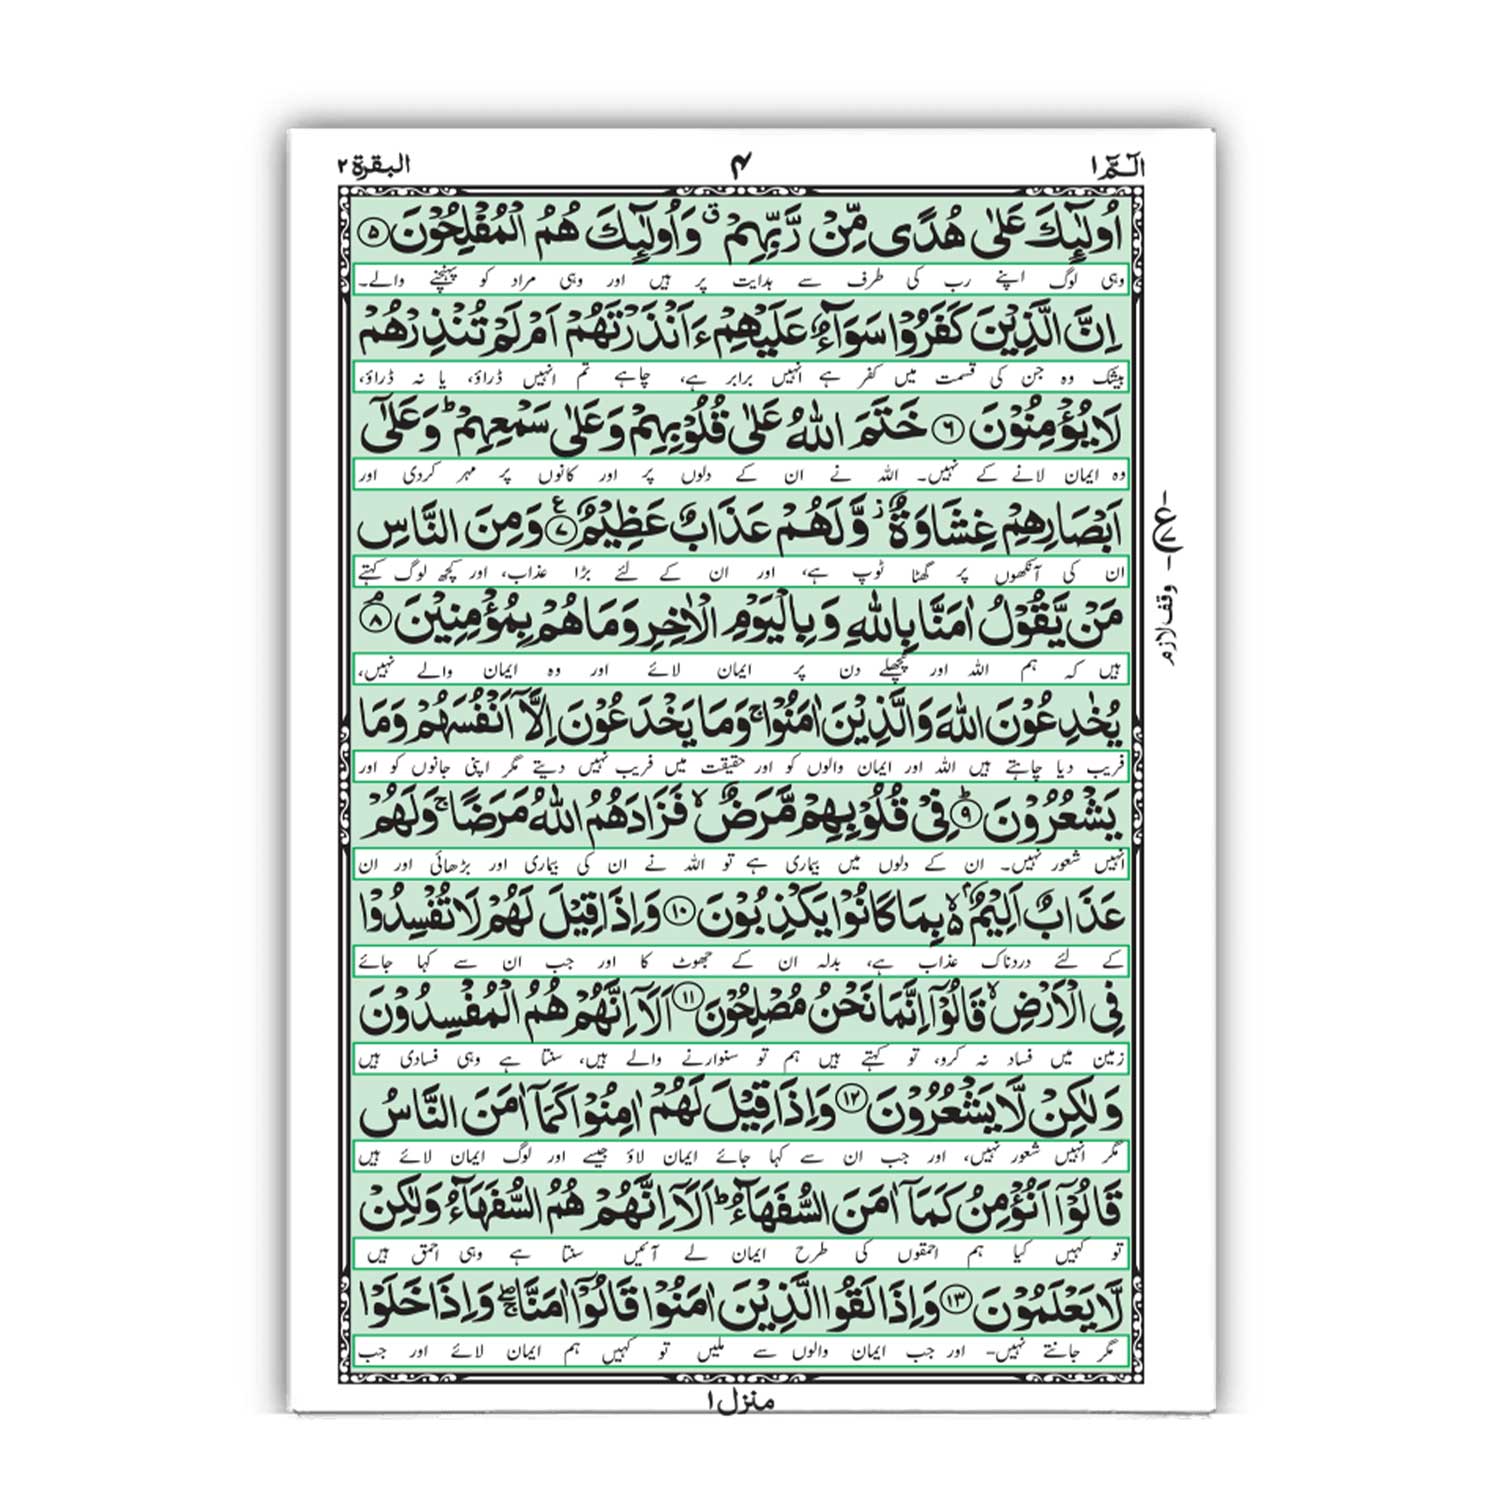 الٓمّٓ ۱
۴
البقرة ۲
اُولٰٓئِكَ عَلٰى هُدًى مِّنْ رَّبِّهِمْ ۗ وَاُولٰٓئِكَ هُمُ الْمُفْلِحُوْنَ ۵
وہی لوگ اپنے رب کی طرف سے ہدایت پر ہیں اور وہی مراد کو پہنچنے والے۔
اِنَّ الَّذِيْنَ كَفَرُوْا سَوَآءٌ عَلَيْهِمْ ءَاَنْذَرْتَهُمْ اَمْ لَمْ تُنْذِرْهُمْ
بیشک وہ جن کی قسمت میں کفر ہے انہیں برابر ہے، چاہے تم انہیں ڈراؤ، یا نہ ڈراؤ،
لَا يُؤْمِنُوْنَ ۶ خَتَمَ اللّٰهُ عَلٰى قُلُوْبِهِمْ وَعَلٰى سَمْعِهِمْ ؕ وَعَلٰٓى
وہ ایمان لانے کے نہیں۔ اللہ نے ان کے دلوں پر اور کانوں پر مہر کردی اور
اَبْصَارِهِمْ غِشَاوَةٌ ز وَّلَهُمْ عَذَابٌ عَظِيْمٌ ۷ ع وَمِنَ النَّاسِ
ان کی آنکھوں پر گھٹا ٹوپ ہے، اور ان کے لئے بڑا عذاب، اور کچھ لوگ کہتے
مَنْ يَّقُوْلُ اٰمَنَّا بِاللّٰهِ وَبِالْيَوْمِ الْاٰخِرِ وَمَا هُمْ بِمُؤْمِنِيْنَ ۸ ۘ
ہیں کہ ہم اللہ اور پچھلے دن پر ایمان لائے اور وہ ایمان والے نہیں،
يُخٰدِعُوْنَ اللّٰهَ وَالَّذِيْنَ اٰمَنُوْا ۚ وَمَا يَخْدَعُوْنَ اِلَّآ اَنْفُسَهُمْ وَمَا
فریب دیا چاہتے ہیں اللہ اور ایمان والوں کو اور حقیقت میں فریب نہیں دیتے مگر اپنی جانوں کو اور
يَشْعُرُوْنَ ۹ ؕ فِيْ قُلُوْبِهِمْ مَّرَضٌ ۙ فَزَادَهُمُ اللّٰهُ مَرَضًا ۚ وَلَهُمْ
انہیں شعور نہیں۔ ان کے دلوں میں بیماری ہے تو اللہ نے ان کی بیماری اور بڑھائی اور ان
عَذَابٌ اَلِيْمٌۢ ۵ۙ بِمَا كَانُوْا يَكْذِبُوْنَ ۱۰ وَاِذَا قِيْلَ لَهُمْ لَا تُفْسِدُوْا
کے لئے دردناک عذاب ہے، بدلہ ان کے جھوٹ کا اور جب ان سے کہا جائے
فِي الْاَرْضِ ۙ قَالُوْٓا اِنَّمَا نَحْنُ مُصْلِحُوْنَ ۱۱ اَلَآ اِنَّهُمْ هُمُ الْمُفْسِدُوْنَ
زمین میں فساد نہ کرو، تو کہتے ہیں ہم تو سنوارنے والے ہیں، سنتا ہے وہی فسادی ہیں
وَلٰكِنْ لَّا يَشْعُرُوْنَ ۱۲ وَاِذَا قِيْلَ لَهُمْ اٰمِنُوْا كَمَآ اٰمَنَ النَّاسُ
مگر انہیں شعور نہیں، اور جب ان سے کہا جائے ایمان لاؤ جیسے اور لوگ ایمان لائے ہیں
قَالُوْٓا اَنُؤْمِنُ كَمَآ اٰمَنَ السُّفَهَآءُ ؕ اَلَآ اِنَّهُمْ هُمُ السُّفَهَآءُ وَلٰكِنْ
تو کہیں کیا ہم احمقوں کی طرح ایمان لے آئیں سنتا ہے وہی احمق ہیں
لَّا يَعْلَمُوْنَ ۱۳ وَاِذَا لَقُوا الَّذِيْنَ اٰمَنُوْا قَالُوْٓا اٰمَنَّا ۖۚ وَاِذَا خَلَوْا
مگر جانتے نہیں۔ اور جب ایمان والوں سے ملیں تو کہیں ہم ایمان لائے اور جب
منزل ۱
ع
۷
وقف لازم